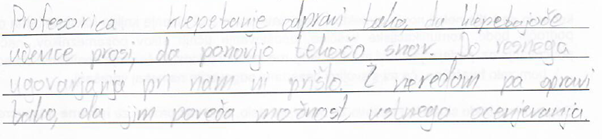 Profesorica klepetanje odpravi tako, da klepetajoče
učence prosi, da ponovijo tekočo snov. Do resnega
ugovarjanja pri nam ni prišlo. Z neredom pa opravi
tako, da jim poveča možnost ustnega ocenjevanja.